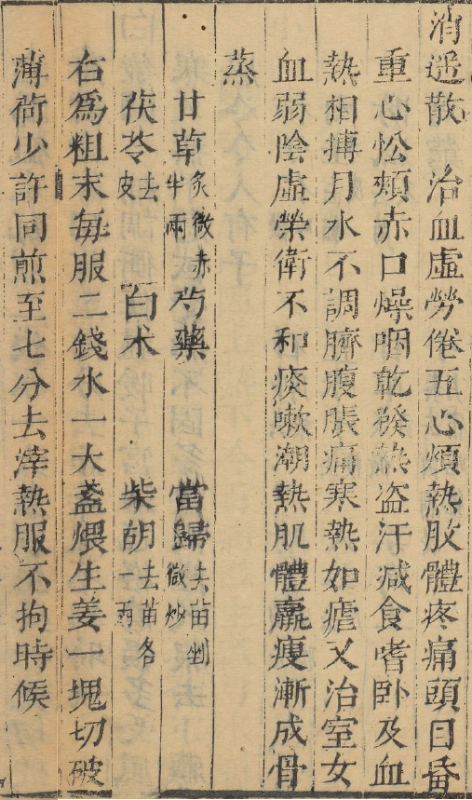 消遥散 治血虛勞倦五心煩熱肢體疼痛頭目昏
重心忪頰赤口燥咽乾發熱盗汗减食嗜卧及血
熱相搏月水不調臍腹脹痛寒熱如瘧又治室女
血弱陰虛榮衛不和痰嗽潮熱肌體羸瘦漸成骨
蒸
甘草炙微赤半兩 芍藥 當歸去苗剉微炒
茯苓去皮 白术 柴胡去苗各一兩
右為粗末每服二錢水一大盞煨生姜一塊切破
薄荷少許同煎至七分去滓熱服不拘時候